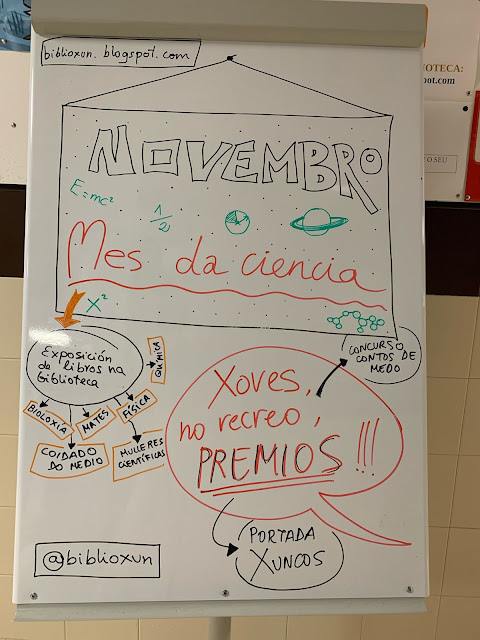 biblioxun.blogspot.com
NOVEMBRO
E=mc²
1/2
Mes da ciencia
X²
Exposición
de libros na
biblioteca
QUÍMICA
BIOLOXÍA
MATES
FÍSICA
COIDADO
DO MEDIO
MULLERES
CIENTÍFICAS
CONCURSO
CONTOS DE
MEDO
Xoves,
no recreo,
PREMIOS!!!
PORTADA
XUNCOS
@biblioxun
IOTECA:
pot.com
E O SEU